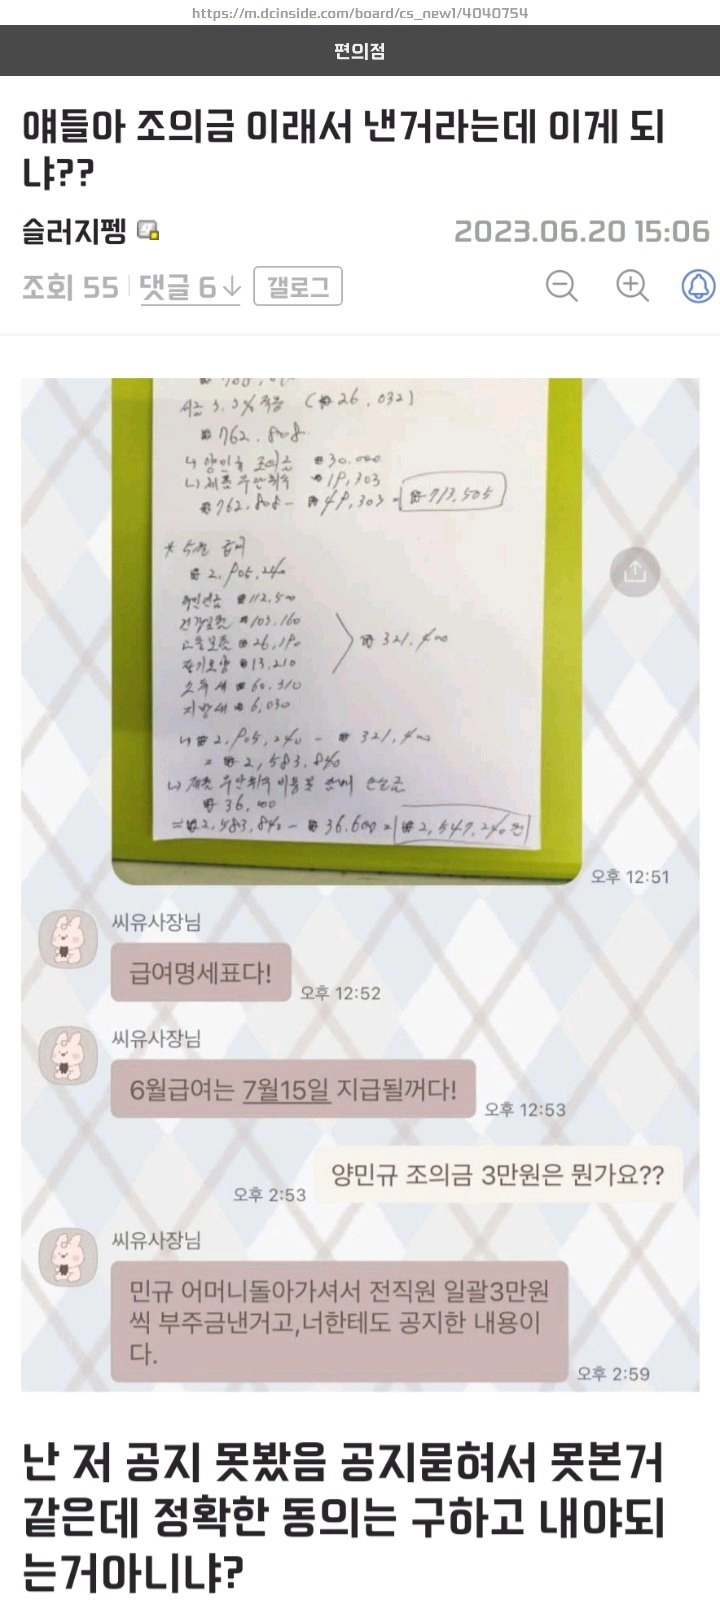 https://m.dcinside.com/board/cs_new1/4040754
편의점
얘들아 조의금 이래서 낸거라는데 이게 되
냐??
슬러지펭
2023.06.20 15:06
조회 55 댓글 6↓ 갤로그
3.3% (₩26.032)
₩762.808
ㄴ 양민규 조의금 ₩30.000
ㄴ 제품 무단취식 ₩19,303
₩762.808 - ₩49,303 = ₩713,505
* 5월 급여
₩2,905,240
국민연금 ₩112,500
건강보험 ₩103.160
고용보험 ₩26,190
장기요양 ₩13,210
₩321,400
소득세 ₩60.310
지방세 ₩6,030
ㄴ ₩2,905,240 - ₩321,400
= ₩2,583,840
ㄴ 제품 무단취식
₩36,600
= ₩2,583,840 - ₩36,600 = ₩2,547,240원
오후 12:51
씨유사장님
급여명세표다!
오후 12:52
씨유사장님
6월급여는 7월15일 지급될꺼다!
오후 12:53
양민규 조의금 3만원은 뭔가요??
오후 2:53
씨유사장님
민규 어머니돌아가셔서 전직원 일괄3만원
씩 부주금낸거고,너한테도 공지한 내용이
다.
오후 2:59
난 저 공지 못봤음 공지묻혀서 못본거
같은데 정확한 동의는 구하고 내야되
는거아니냐?